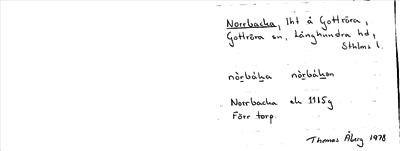 Norrbacka, lht å Gottröra,
Gottröra sn, Långhundra hd,
Sthlms l.
nòrbáka nòrbákon
Norrbacka ek 1115g
Förr torp.
Thomas Åberg 1978